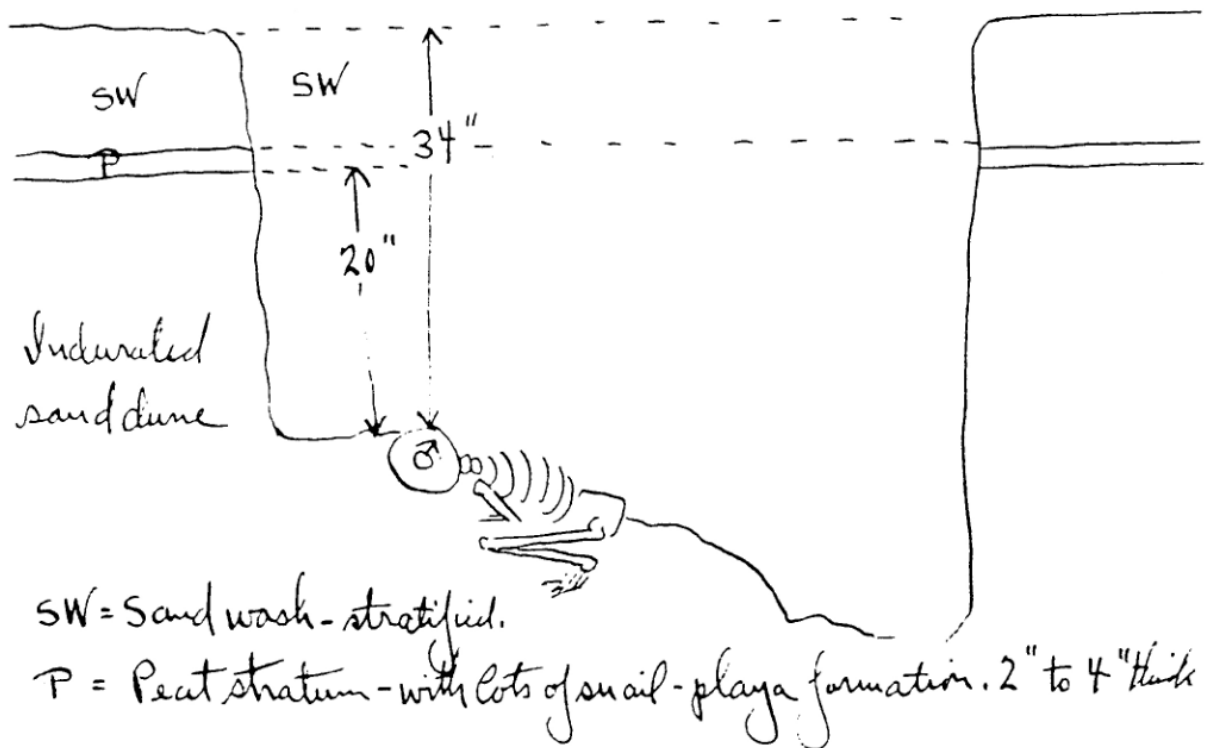 SW
SW
34"
P
20"
Indurated
sand dune
♂
SW = Sand wash - stratified.
P = Peat stratum - with lots of snail - playa formation. 2" to 4" thick